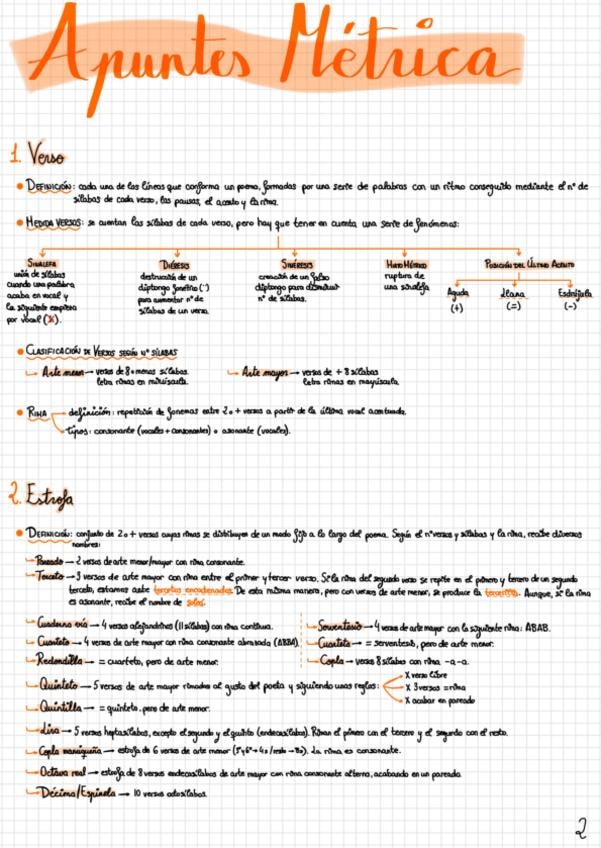 Apuntes Métrica
1. Verso
DEFINICIÓN: cada una de las líneas que conforma un poema, formadas por una serie de palabras con un ritmo conseguido mediante el nº de
sílabas de cada verso, las pausas, el acento y la rima.
MEDIDA VERSOS: se cuentan las sílabas de cada verso, pero hay que tener en cuenta una serie de fenómenos:
SINALEFA
unión de sílabas
cuando una palabra
acaba en vocal y
la siguiente empieza
por vocal (X).
DIÉRESIS
destrucción de un
diptongo fonético (¨)
para aumentar nº de
sílabas de un verso.
SINÉRESIS
creación de un falso
diptongo para disminuir
nº de sílabas.
HIATO MÉTRICO
ruptura de
una sinalefa
POSICIÓN DEL ÚLTIMO ACENTO
Aguda
(+)
Llana
(=)
Esdrújula
(-)
CLASIFICACIÓN DE VERSOS SEGÚN Nº SÍLABAS
Arte menor → versos de 8 o menos sílabas.
letra rimas en minúscula.
Arte mayor → versos de + 8 sílabas
letra rimas en mayúscula.
RIMA
definición: repetición de fonemas entre 2 o + versos a partir de la última vocal acentuada.
tipos: consonante (vocales + consonantes) o asonante (vocales).
2. Estrofa
DEFINICIÓN: conjunto de 2 o + versos cuyas rimas se distribuyen de un modo fijo a lo largo del poema. Según el nº versos y sílabas y la rima, recibe diversos
nombres:
Pareado → 2 versos de arte menor/mayor con rima consonante.
Terceto → 3 versos de arte mayor con rima entre el primer y tercer verso. Si la rima del segundo verso se repite en el primero y tercero de un segundo
terceto, estamos ante tercetos encadenados. De esta misma manera, pero con versos de arte menor, se produce la tercerilla. Aunque, si la rima
es asonante, recibe el nombre de soleá.
Cuaderna vía → 4 versos alejandrinos (11 sílabas) con rima continua.
Cuarteto → 4 versos de arte mayor con rima consonante abrazada (ABBA).
Redondilla → = cuarteto, pero de arte menor.
Serventesio → 4 versos de arte mayor con la siguiente rima: ABAB.
Cuarteta → = serventesio, pero de arte menor.
Copla → versos 8 sílabas con rima -a-a.
Quinteto → 5 versos de arte mayor rimados al gusto del poeta y siguiendo unas reglas:
X verso libre
X 3 versos = rima
X acabar en pareado
Quintilla → = quinteto, pero de arte menor.
Lira → 5 versos heptasílabos, excepto el segundo y el quinto (endecasílabos). Riman el primero con el tercero y el segundo con el resto.
Copla manriqueña → estrofa de 6 versos de arte menor (3º y 6º → 4s / resto → 8s). La rima es consonante.
Octava real → estrofa de 8 versos endecasílabos de arte mayor con rima consonante alterna, acabando en un pareado.
Décima/Espinela → 10 versos octosílabos.
2